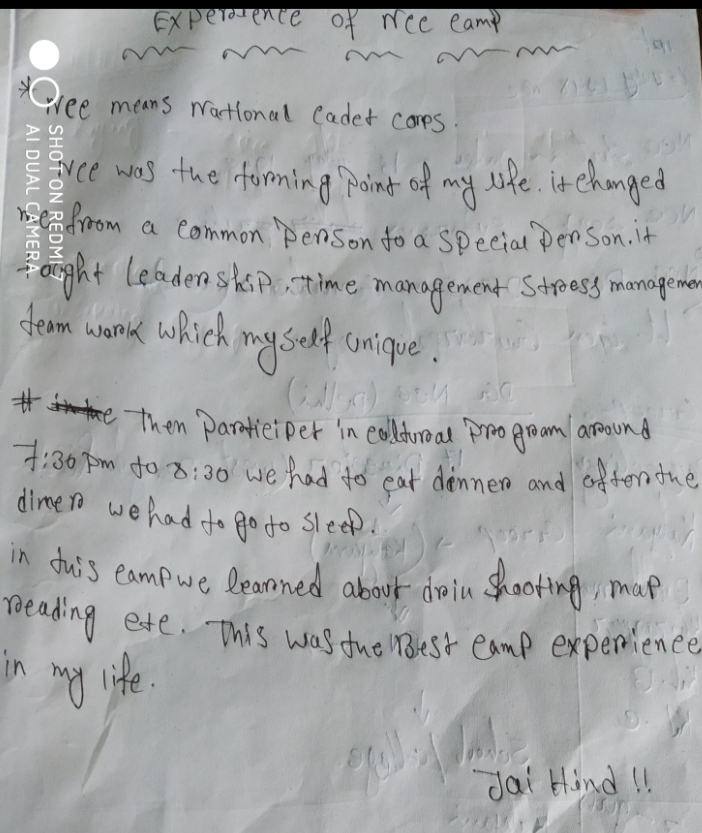 Experience of Ncc camp
* Ncc means National Cadet Corps.
Ncc was the turning point of my life. it changed
me from a common person to a special person. it
tought Leadership, time management stress managemen
team work which myself unique.
# in the Then Participet in cultural program around
7:30 pm to 8:30 we had to eat dinner and after the
diner we had to go to sleep.
in this camp we learned about drill shooting, map
reading etc. This was the Best camp experience
in my life.
Jai Hind !!
SHOT ON REDMI 7
AI DUAL CAMERA